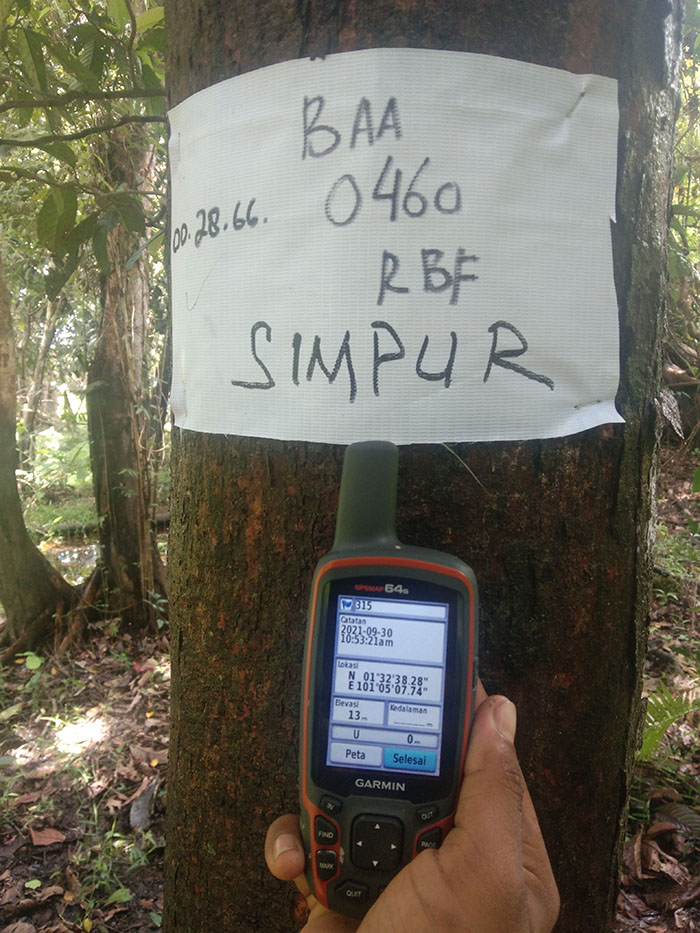 BAA
00.28.66. 0460
RBF
SIMPUR
GPSMAP 64s
315
Catatan
2021-09-30
10:53:21am
Lokasi
N 01°32'38.28"
E 101°05'07.74"
Elevasi Kedalaman
13m ____m
U 0m
Peta Selesai
GARMIN
IN OUT
FIND PAGE
MARK
QUIT